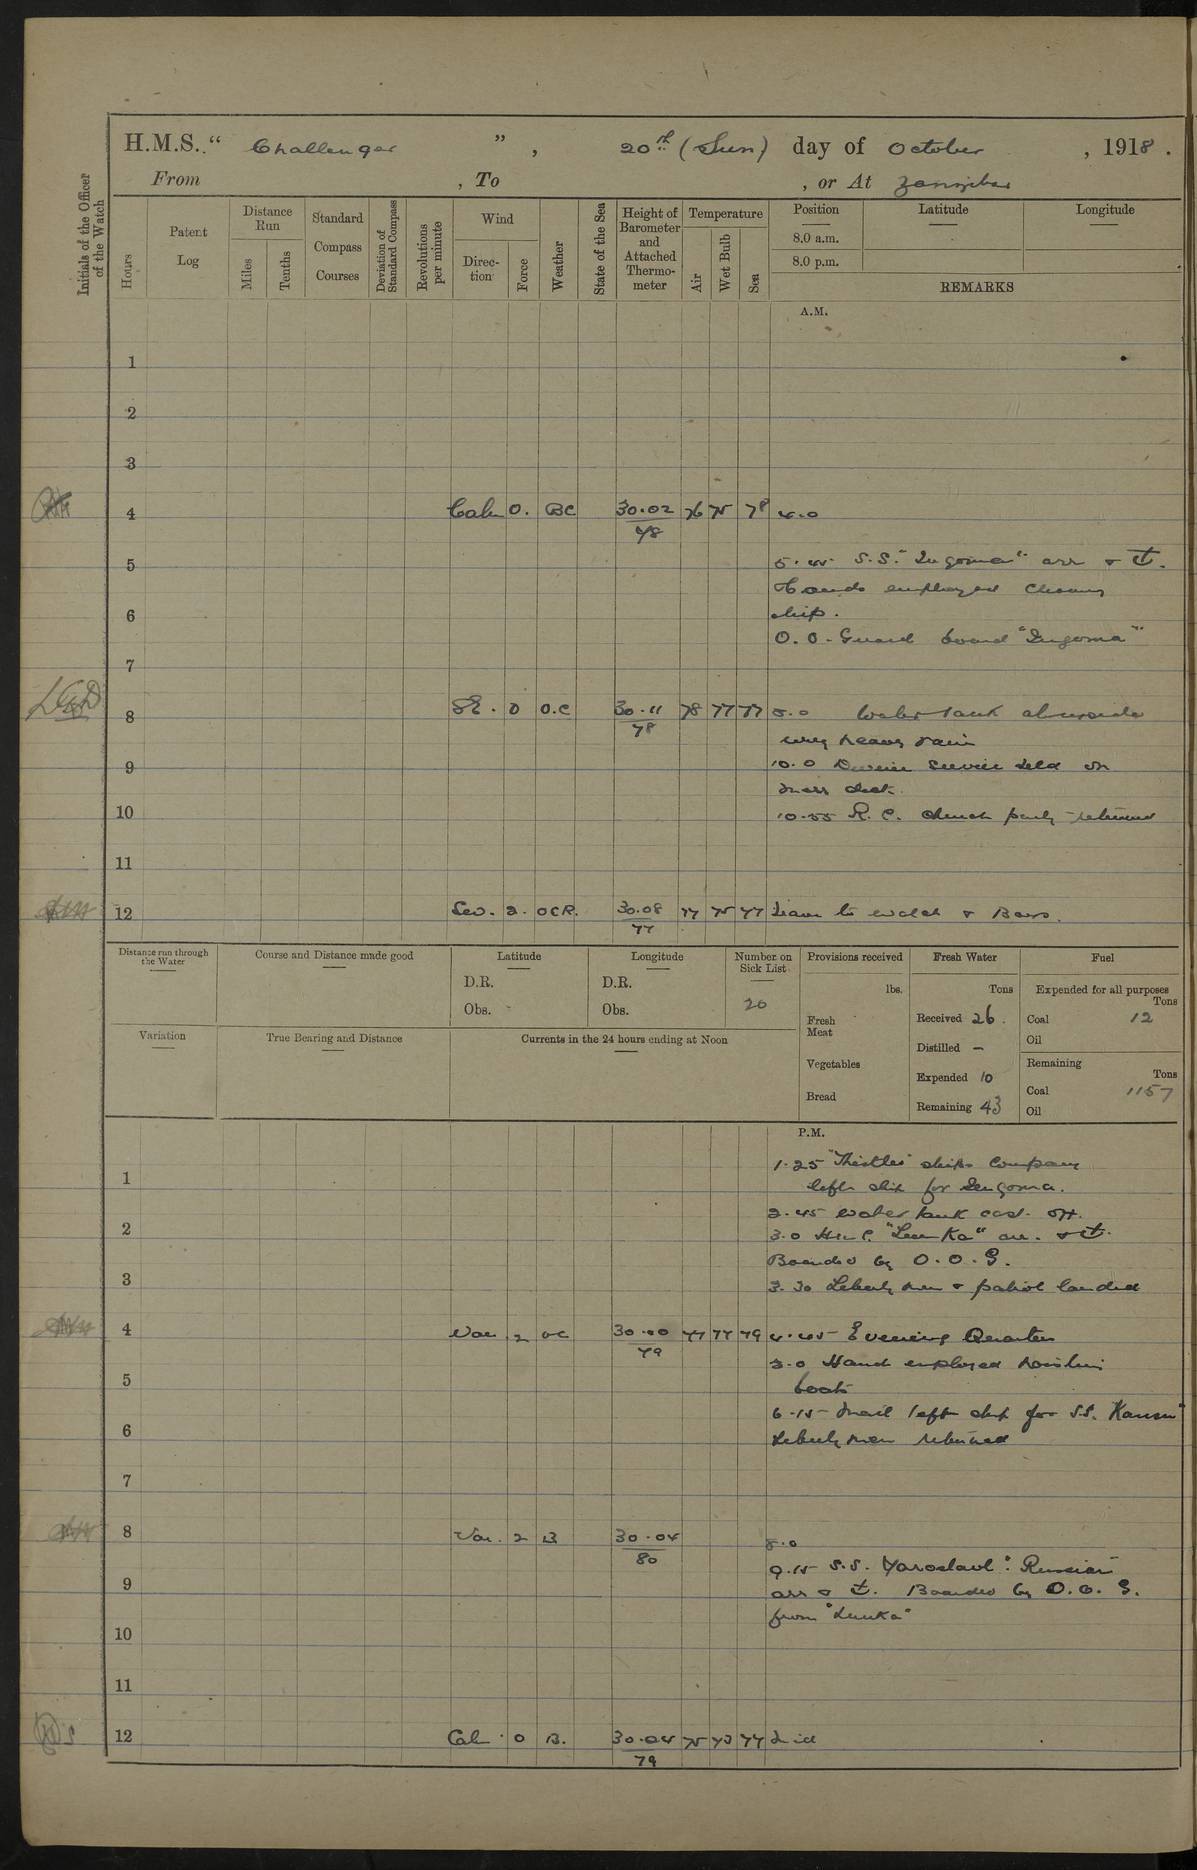 H.M.S. " Challenger ", 20th (Sun) day of October, 1918.
From , To , or At Zanzibar
Initials of the Officer of the Watch
Hours
Patent Log
Distance Run
Miles
Tenths
Standard Compass Courses
Deviation of Standard Compass
Revolutions per minute
Wind
Direction
Force
Weather
State of the Sea
Height of Barometer and Attached Thermometer
Temperature
Air
Wet Bulb
Sea
Position
8.0 a.m.
8.0 p.m.
Latitude
Longitude
REMARKS
A.M.
1
2
3
4 Calm 0. BC 30.02 78 76 75 78 4.0
5 5.45 S.S. "Ingoma" arr &
Hands employed
6 ship.
O.O. Guard board "Ingoma"
7
8 0 O.C 30.11 78 78 77 77 8.0 Water tank alongside
very heavy rain
9 10.0 Divine Service held on
mess deck
10 10.55 R.C. church party returned
11
12 2. OCR. 30.08 77 77 75 77 Leave to watch & Boys.
Distance run through the Water
Course and Distance made good
Latitude
D.R.
Obs.
Longitude
D.R.
Obs.
Number on Sick List
20
Provisions received
lbs.
Fresh Meat
Vegetables
Bread
Fresh Water
Tons
Received 26.
Distilled —
Expended 10
Remaining 43
Fuel
Expended for all purposes
Tons
Coal 12
Oil
Remaining
Tons
Coal 1157
Oil
Variation
True Bearing and Distance
Currents in the 24 hours ending at Noon
P.M.
1.25 "Thistles" ships company
1 left ship for Ingoma.
2.45 water tank cast off.
2 3.0 arr. &
Boarded by O.O.G.
3 3.30 Liberty men & patrol landed
4 Var. 2 OC 30.00 79 77 77 79 4.45 Evening Quarters
Hands employed hoisting
5 boats
6.15 Mail left ship for S.S. Kansu"
6 Liberty men returned
7
8 Var. 2 B 30.04 80 8.0
9.15 S.S. Yaroslavl "Russian"
9 arr & Boarded by O.O.G.
from "Lunka"
10
11
12 Calm 0 B. 30.04 79 75 73 77